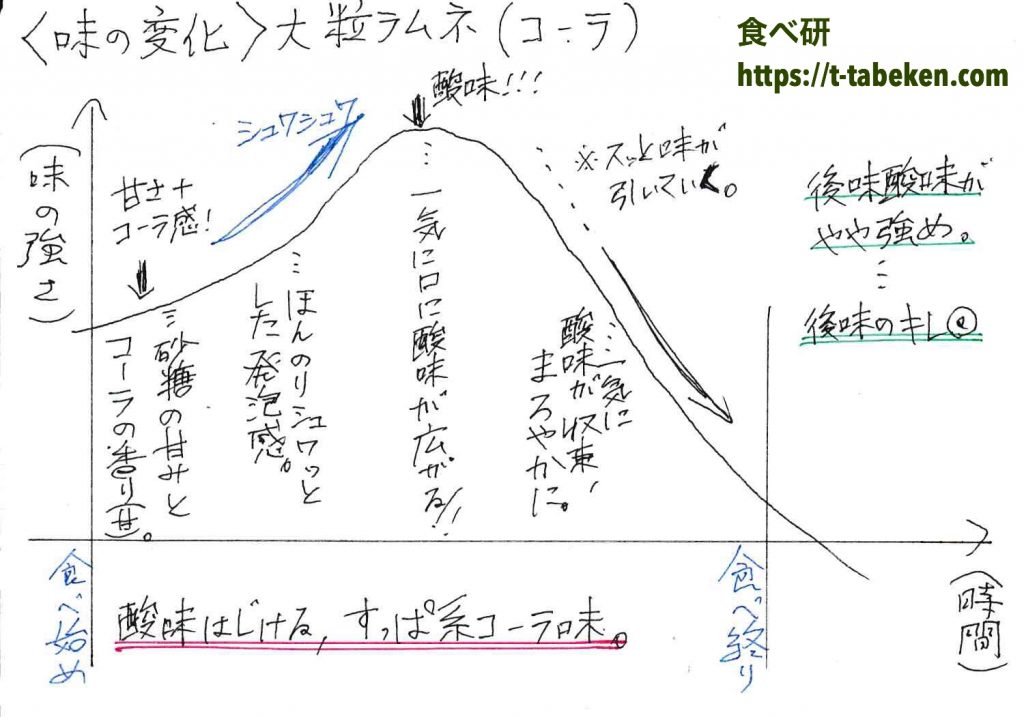 〈味の変化〉大粒ラムネ(コーラ)
食べ研
https://t-tabeken.com
(味の強さ)
甘さ+
コーラ感!
シュワシュワ
酸味!!!
※スッと味が
引いていく。
後味酸味が
やや強め。
…
後味のキレ◎
…砂糖の甘みと
コーラの香り(甘)。
…ほんのりシュワッと
した発泡感。
…一気に口に酸味が広がる!!
…一気に
酸味が収束、
まろやかに。
食べ始め
食べ終り
(時間)
酸味はじける,すっぱ系コーラ味。